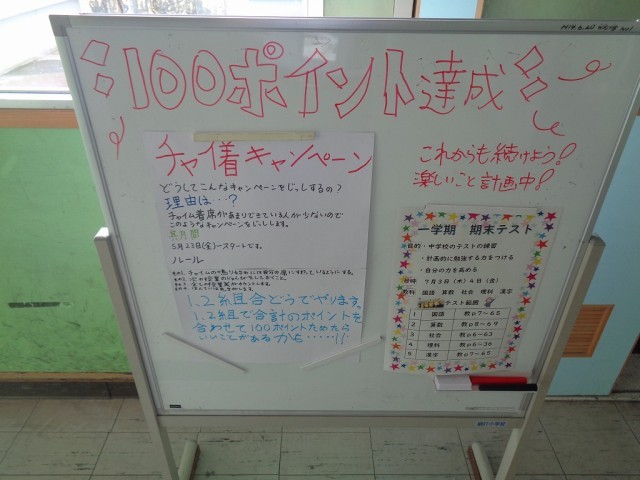 100ポイント達成
これからも続けよう!
楽しいこと計画中!
チャイ着キャンペーン
どうしてこんなキャンペーンをじっしするの?
理由は…?
チャイム着席があまりできている人が少ないので
このようなキャンペーンをじっしします。
5月23日(金)〜スタートです。
ルール
1、2組合どうでやります。
1、2組で合計のポイントを
合わせて100ポイントためたら
いいことがあるかも……!!
一学期 期末テスト
目的・中学校のテストの練習
・計画的に勉強する力をつける
・自分の力を高める
日時 7月3日(木)4日(金)
教科 国語 算数 社会 理科 漢字
テスト範囲
1 国語 教p7〜65
2 算数 教p8〜69
3 社会 教p6〜63
4 理科 教p6〜36
5 漢字 教p7〜65